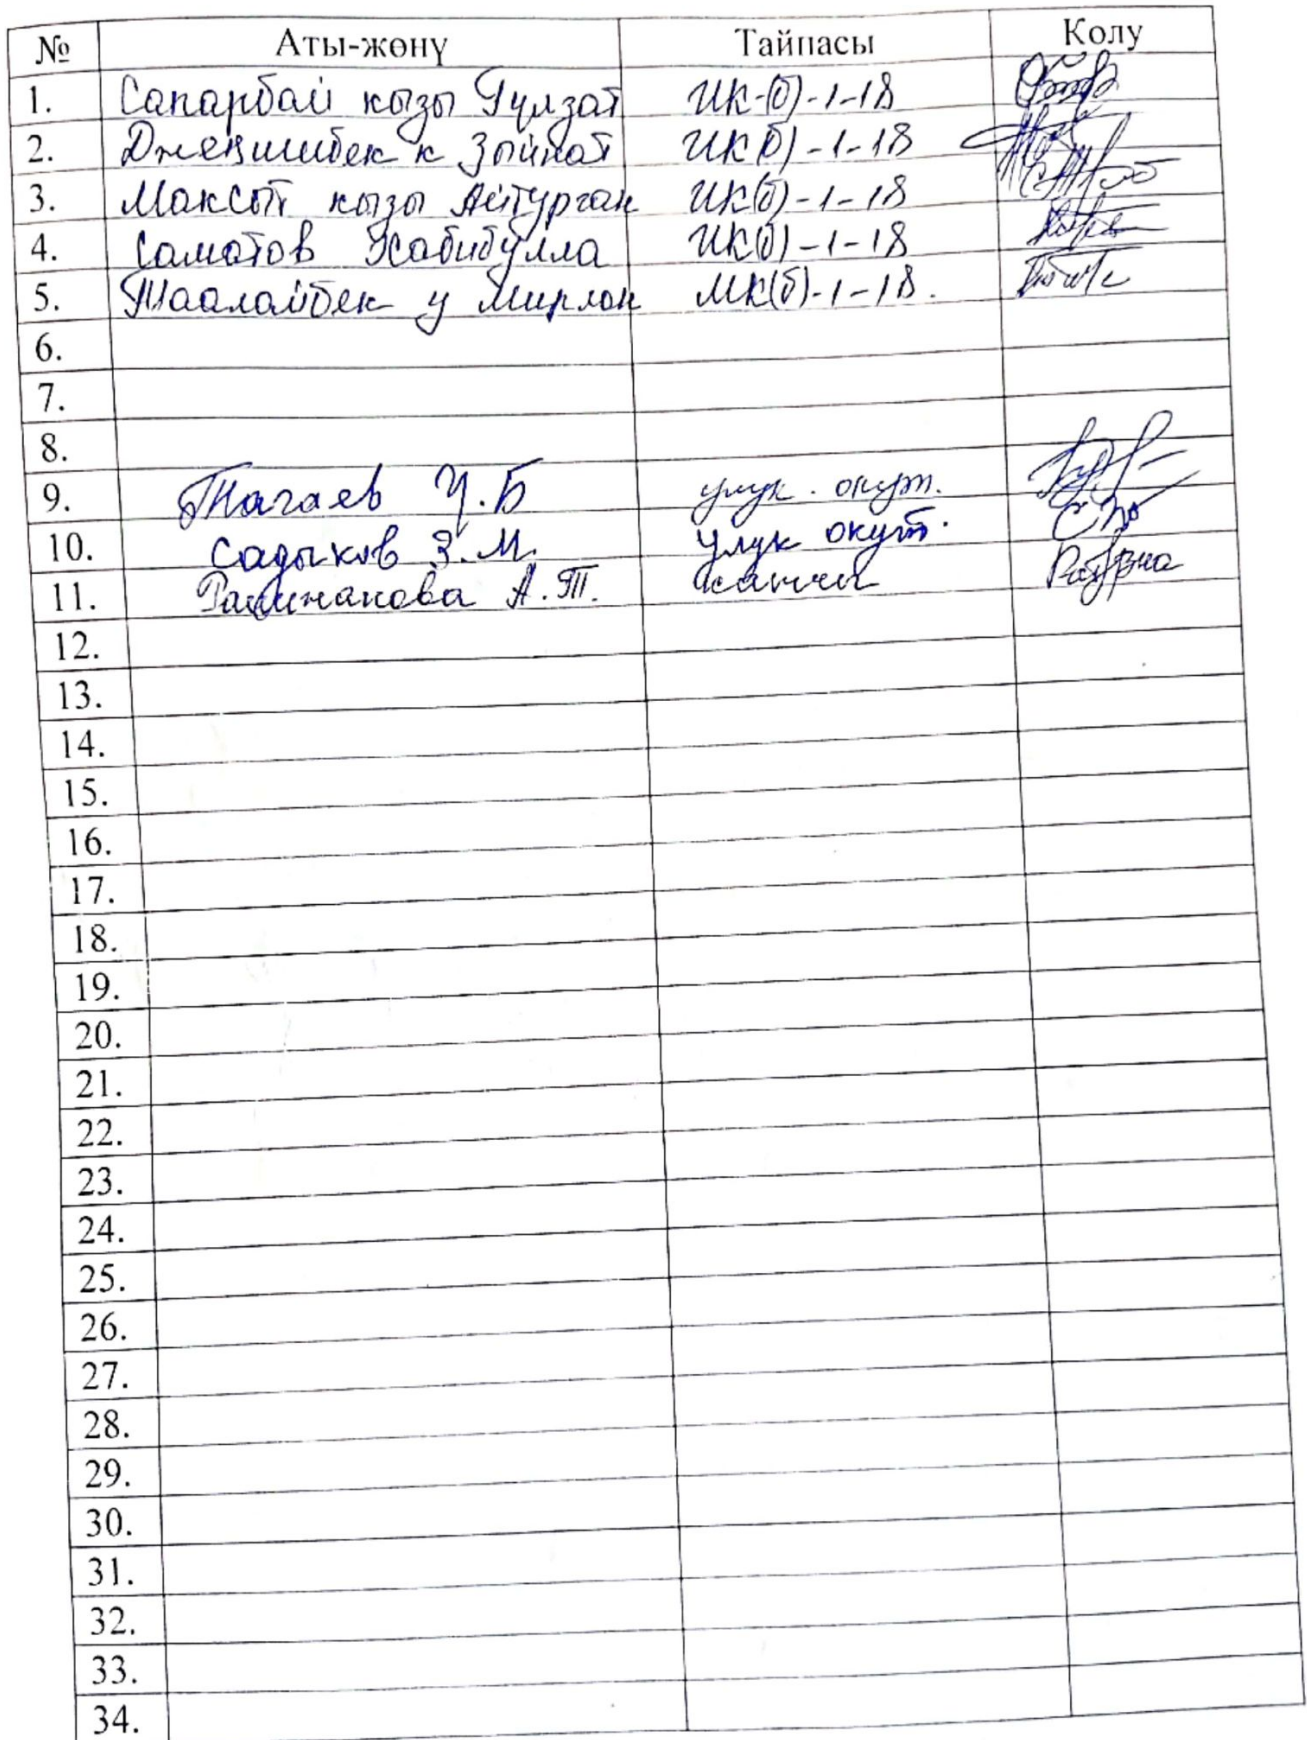 № Аты-жөнү Тайпасы Колу
1. Сапарбай кызы Гулзат ИК-(б)-1-18
2. Джеңишбек к Зыйнат ИК(б)-1-18
3. Максүт кызы Айтурган ИК(б)-1-18
4. Саматов Хабибулла ИК(б)-1-18
5. Таалайбек у Мирлан ИК(б)-1-18.
6.
7.
8.
9. Тагаев У.Б улук. окут.
10. Садыков З.М. улук окут.
11. А.Т.
12.
13.
14.
15.
16.
17.
18.
19.
20.
21.
22.
23.
24.
25.
26.
27.
28.
29.
30.
31.
32.
33.
34.